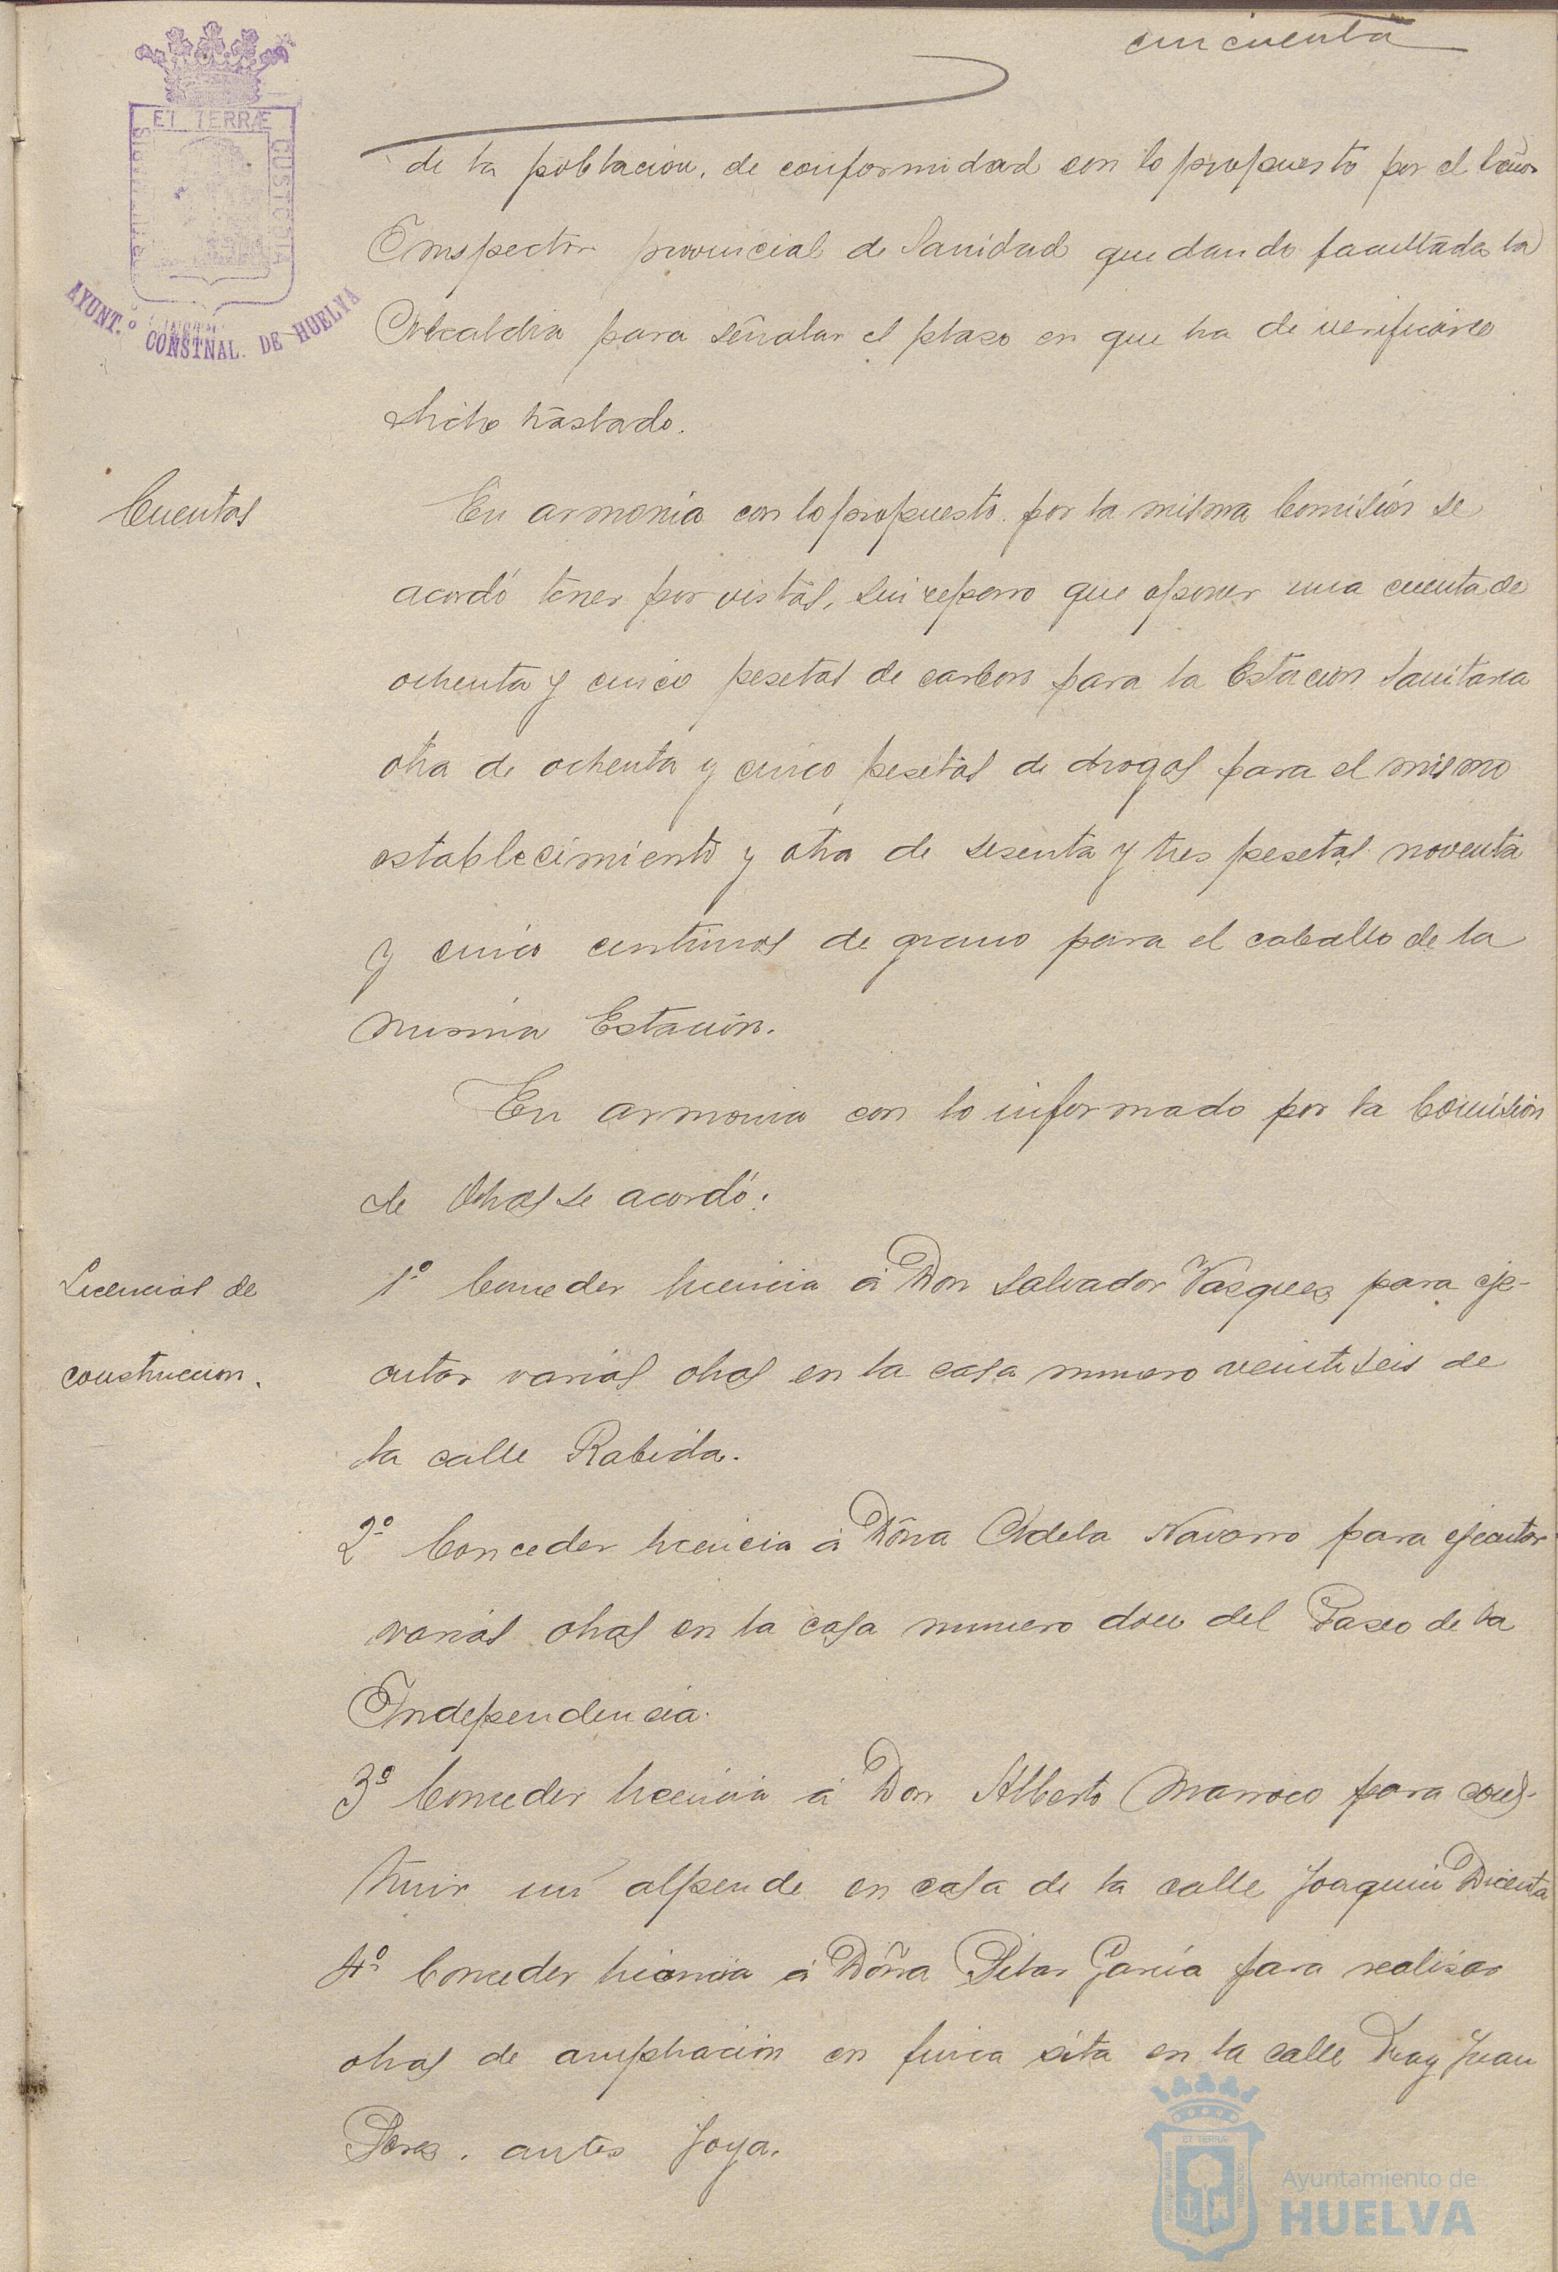 cincuenta
ET TERRÆ
CUSTODIA
AYUNT.º CONSTNAL. DE HUELVA
de la poblacion, de conformidad con lo propuesto por el Señor
Inspector provincial de Sanidad quedando facultada la
Alcaldia para señalar el plazo en que ha de verificarse
dicho traslado.
Cuentas
En armonía con lo propuesto por la misma Comisión se
acordó tener por vistas, sin reparo que oponer una cuenta de
ochenta y cinco pesetas de carbon para la Estacion Sanitaria
otra de ochenta y cinco pesetas de drogas para el mismo
establecimiento y otra de sesenta y tres pesetas noventa
y cinco centimos de grano para el caballo de la
misma Estación.
En armonia con lo informado por la Comisión
de Obras se acordó:
Licencias de
construccion.
1º Conceder licencia á Don Salvador Vasquez para eje-
cutar varias obras en la casa numero veintiseis de
la calle Rabida.
2º Conceder licencia á Doña Adela Navarro para ejecutar
varias obras en la casa numero doce del Paseo de la
Independencia.
3º Conceder licencia á Don Alberto Marroco para cons-
truir un alpende en casa de la calle Joaquin Dicenta
4º Conceder licencia á Doña Pilar García para realisar
obras de ampliación en finca sita en la calle Fray Juan
Peres. antes Joya.
ET TERRÆ
Ayuntamiento de
HUELVA